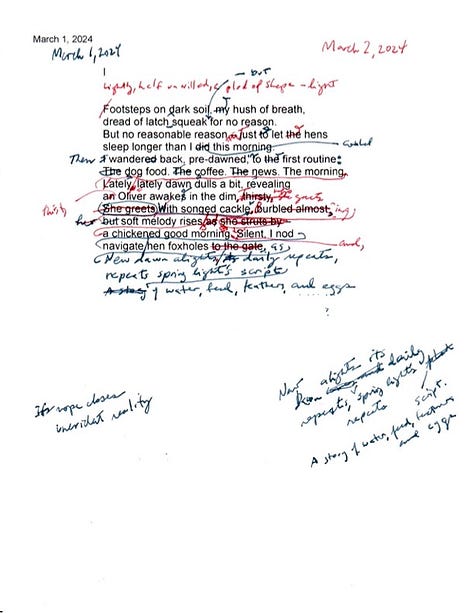 March 1, 2024
March 1, 2024
March 2, 2024
– but
lightly, half unwilled, a plod of shape – light
Footsteps on dark soil, my hush of breath,
dread of latch squeak for no reason.
But no reasonable reason just to let the hens
sleep longer than I did this morning.
Then I wandered back, pre-dawned, to the first routine:
The dog food. The coffee. The news. The morning.
Lately, lately dawn dulls a bit, revealing
an Oliver awakes in the dim, thirsty, she greets
Thirsty
She greets With songed cackle, burbled almost, ing
her but soft melody rises as she struts by
a chickened good morning. Silent, I nod
navigate hen foxholes to the gate, as and,
New dawn alights its daily repeats,
repeats spring light's script
A story of water, feed, feathers, and eggs
?
Now alights its
Dawn daily
repeats, spring lights
repeats script.
A story of water, feed, feathers
and eggs
reality